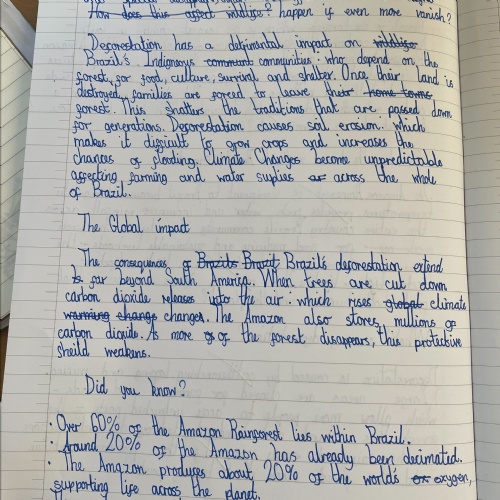 How does this affect wildlife? happen if even more vanish?
Deforestation has a detrimental impact on wildlife
Brazil's Indigenous communit communities: who depend on the
forest, for food, culture, survival and shelter. Once their land is
destroyed, families are forced to leave their home towns
forest. This shatters the traditions that are passed down
for generations. Deforestation causes soil erosion. which
makes it difficult to grow crops and increases the
chances of flooding. Climate Changes become unpredictable
affecting farming and water suplies across the whole
of Brazil.
The Global impact
The consequences of Brazils Brazil Brazil's deforestation extend
far beyond South America. When trees are cut down
carbon dioxide releases into the air: which rises global climate
warming change changes. The Amazon also stores millions of
carbon dioxide. As more of of the forest disappears, this protective
sheild weakens.
Did you know?
• Over 60% of the Amazon Rainforest lies within Brazil.
• Around 20% of the Amazon has already been decimated.
• The Amazon produces about 20% of the world's oxygen,
supporting life across the planet.